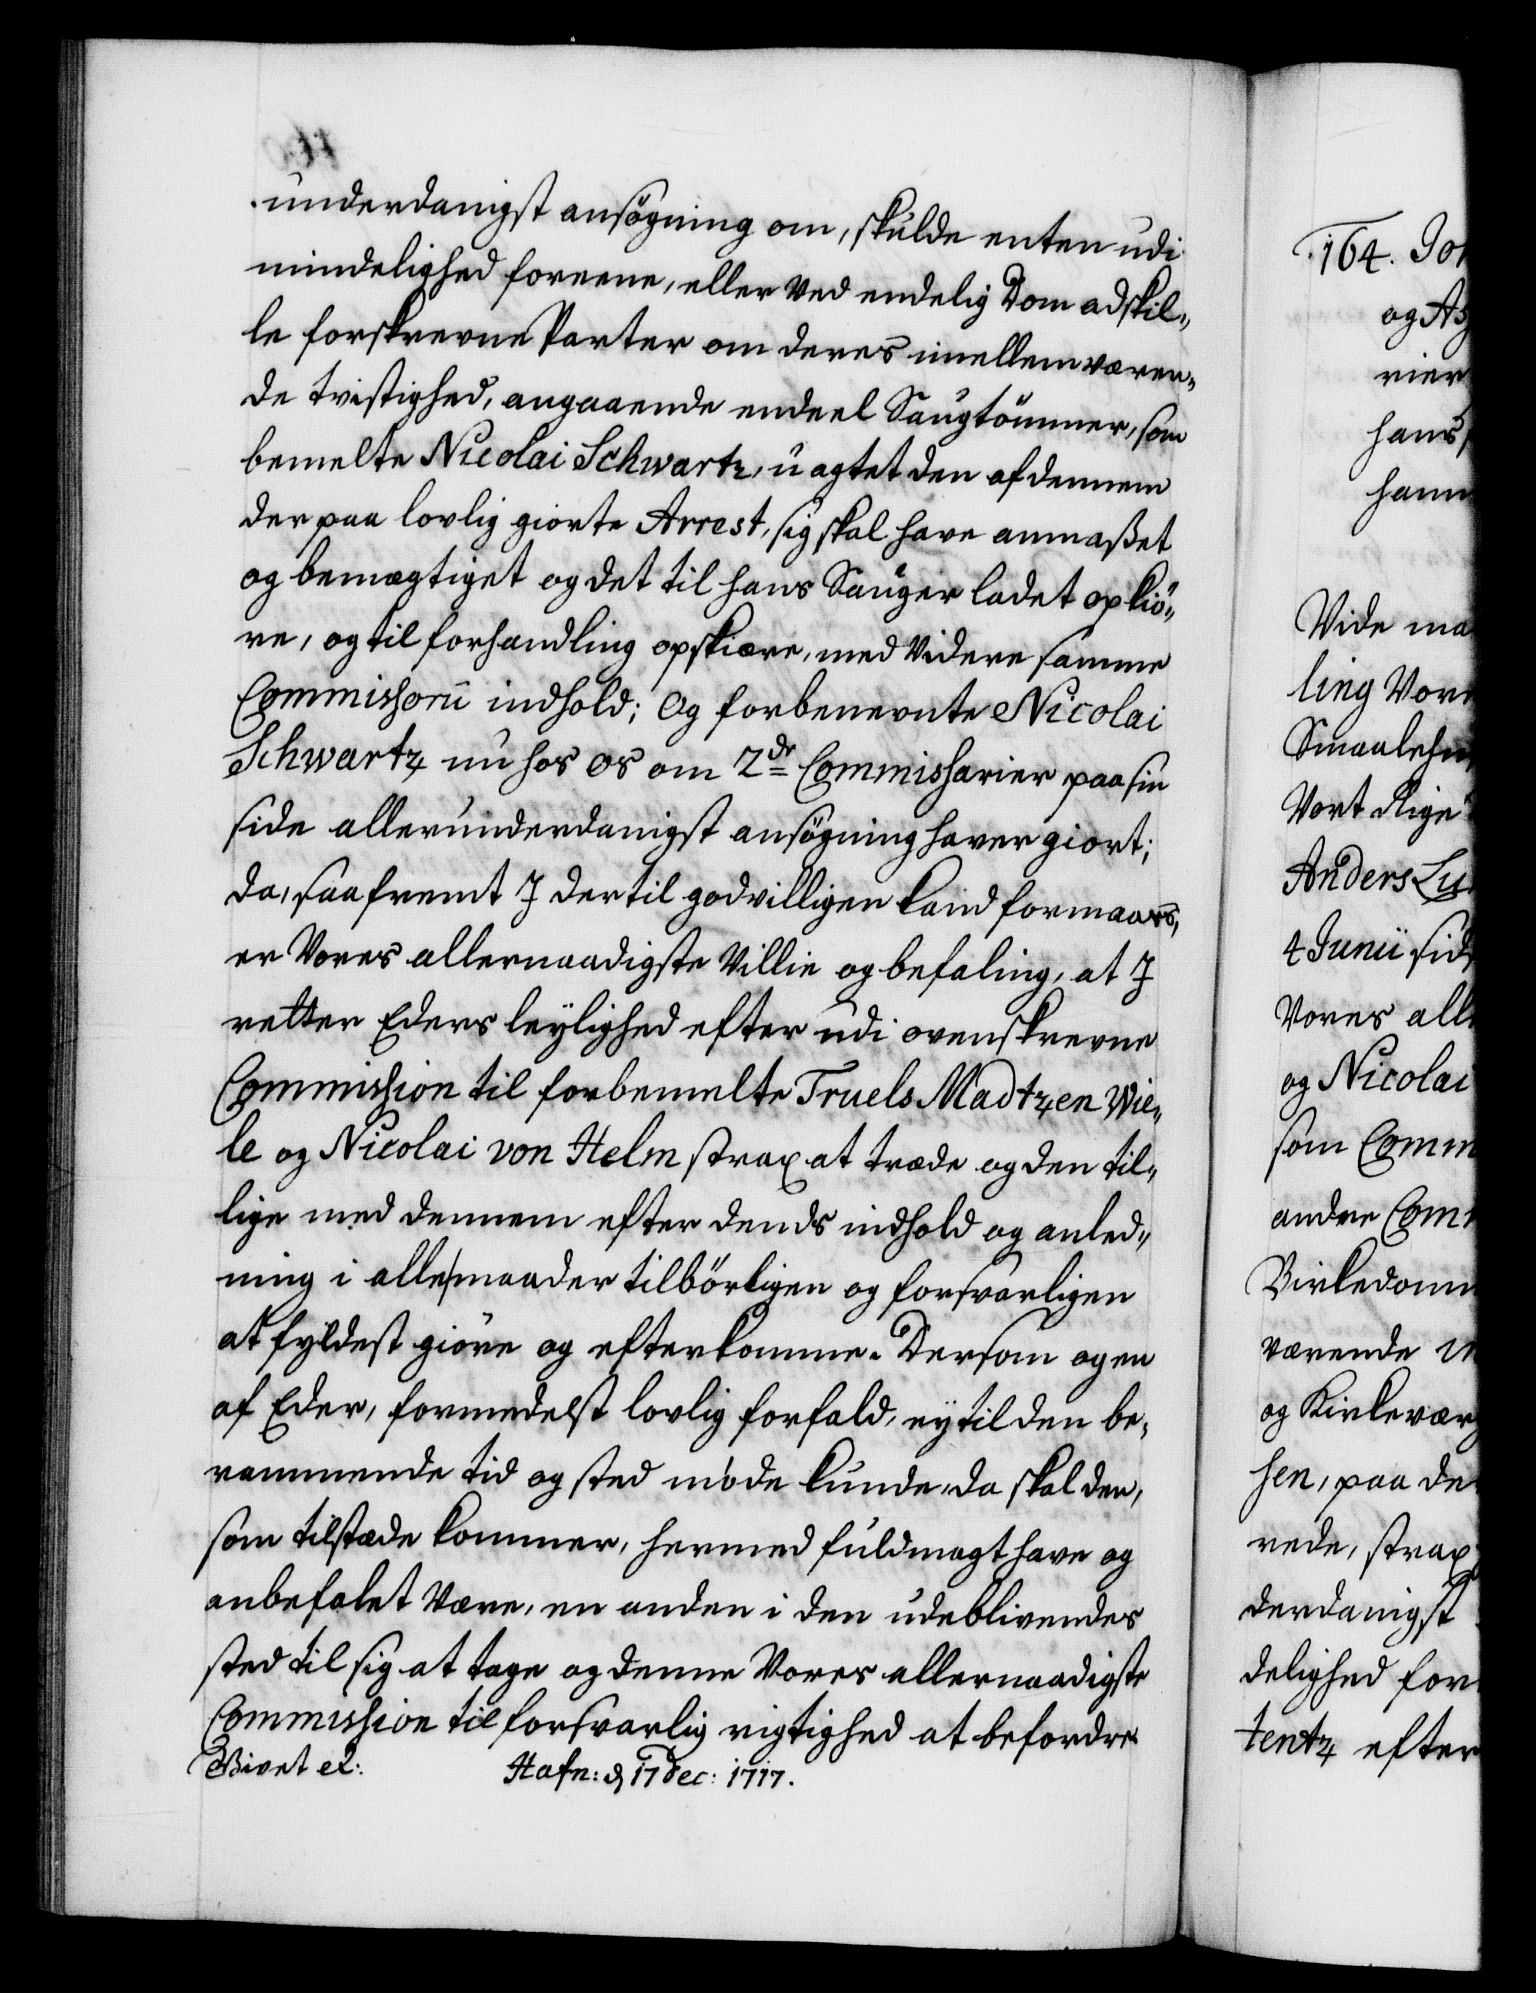 underdanigst ansøgning om, skulde enten udi
mindelighed foreene, eller ved endelig Dom adskil„
le forskrevne Parter om deres imellem væren„
de tvistighed, angaaende endeel Saugtömmer, som
bemelte Nicolai Schwartz, uagtet den af dennem
der paa lovlig giorte Arrest, sig skal have anmaßet
og bemægtiget og det til hans Sauger ladet opkiö„
re, og til forhandling opskiære, med videre samme
Commissorii indhold; Og forbenevnte Nicolai
Schwartz nu hos os om 2de Commissarier paa sin
side allerunderdanigst ansøgning haver giort;
da, saafremt I dertil godvilligen kand formaaes,
er Vores allernaadigste Villie og befaling, at I
retter Eders leylighed efter udi ovenskrevne
Commission til forbemelte Truels Madtzen Wie„
le og Nicolai von Helm strax at træde og den til„
lige med dennem efter dends indhold og anled„
ning i alle maader tilbörligen og forsvarligen
at fyldest giöre og efterkomme. Dersom og en
af Eder, formedelst lovlig forfald, ey til den be„
rammende tid og sted möde kunde, da skal den,
som tilstæde kommer, hermed fuldmagt have og
anbefalet være, en anden i den udeblivendes
sted til sig at tage og denne Vores allernaadigste
Commission til forsvarlig rigtighed at befordre
Bivet etc: Hafn: d 17 Dec: 1717.
164. Joh
og As
rier
hans
hann
Vide ma
ling Vor
Smaalehn
Vort Rige
Anders Lu
4 Junii sids
Vores all
og Nicolai
som Comm
andre Com
Birkedom
værende
og Kirkevær
sen, paa de
rede, strax
derdanigst
delighed for
tentz efter